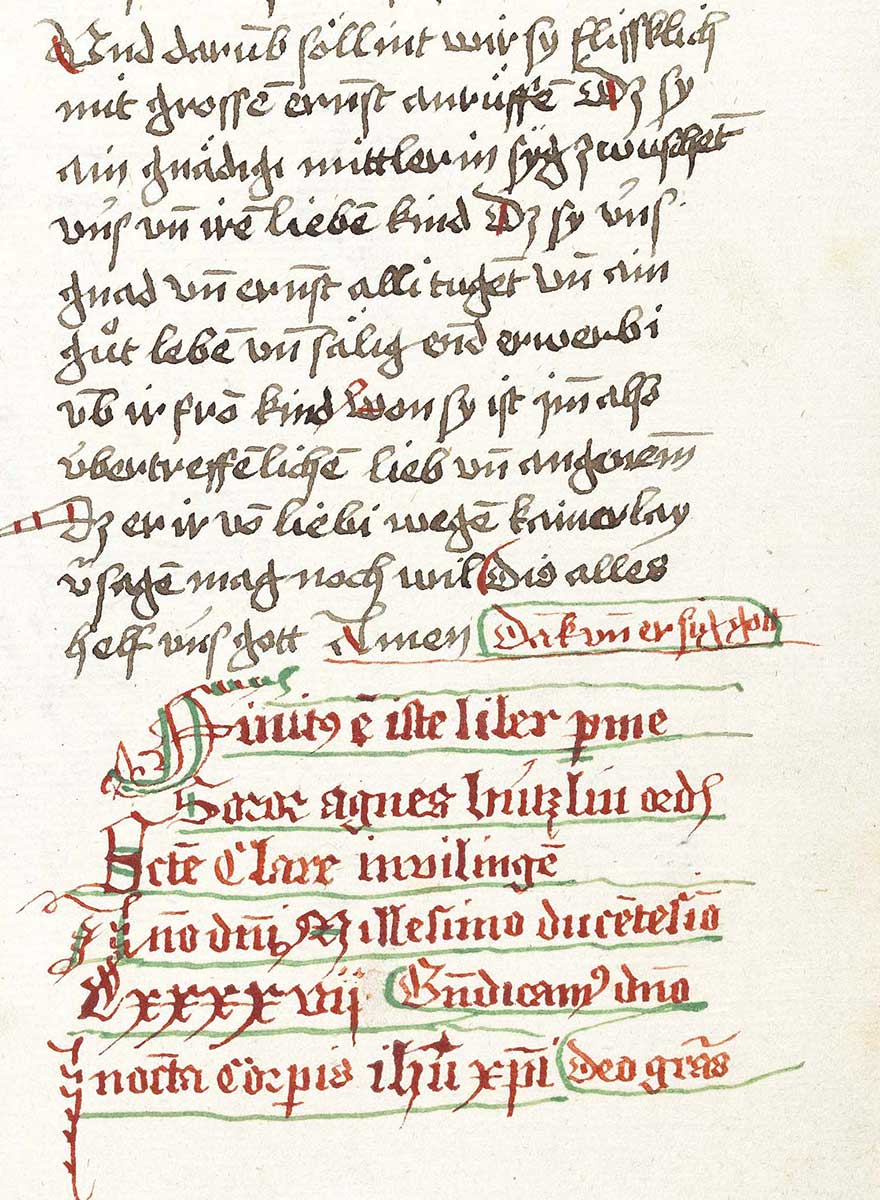 Vnd darūb söllint wir sy flissklich
mit grossē ernst anrüffē Dz sy
ain gnädigi mittlerin syg zwüschet
vns vn̄ irē liebē kind Dz sy vns
gnad vn̄ ernst alli tugēt vn̄ ain
gůt lebē vn̄ sälig end erwerbi
vb ir frō kind won sy ist im also
übertreffēlichē lieb vn̄ angenem̄
Dz er ir vō liebi wegē kainerlay
v̄sagē mag noch wil Dis alles
helf vns gott Amen Dāk vn̄ er syg gott
Finitꝰ ē iste liber p me
Soror agnes hützlin ord
Sctē Clare in vilingē
An̄o dn̄i Millesimo ducētesio
CXXXXvij Bn̄dicamꝰ dn̄o
In octa Corpis ihū xp̄i deo grās